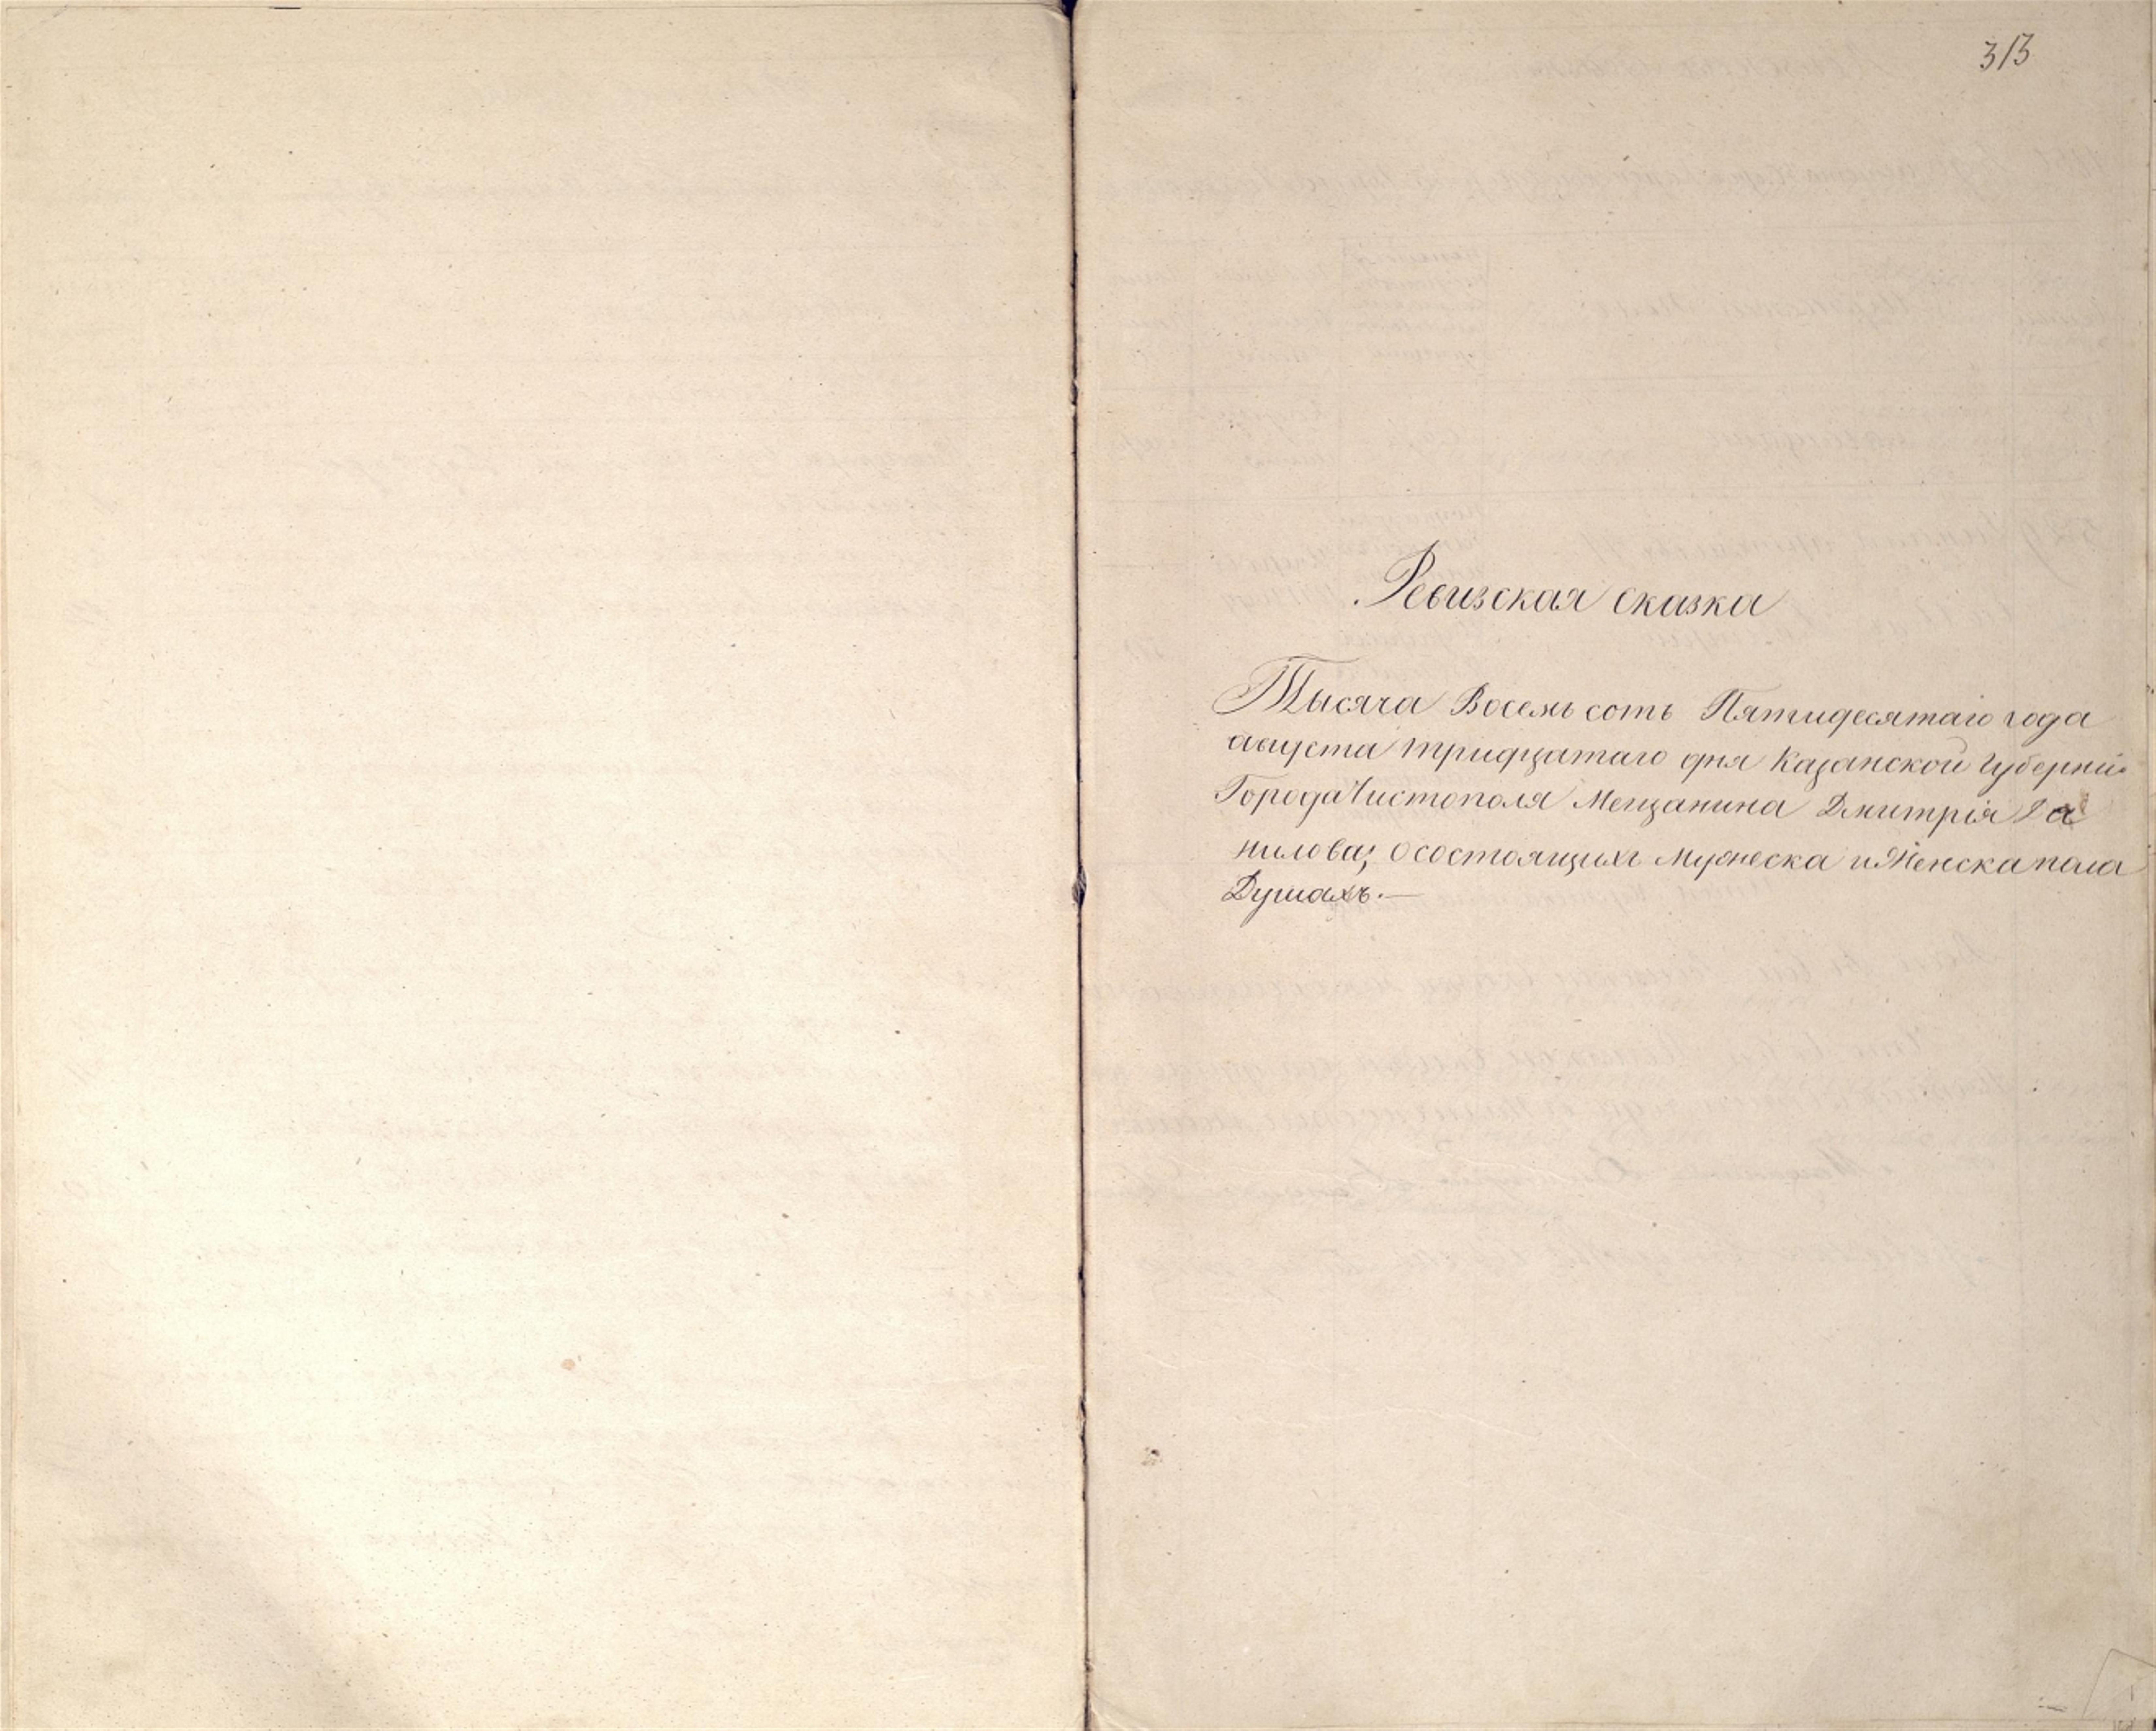 313
Ревизская сказка
Тысяча Восемь сотъ Пятидесятаго года
августа тридцатаго дня Казанской Губерніи
Города Чистополя Мещанина Дмитрія Да
нилова; о состоящихъ Мужеска и Женска пола
Душахъ.—